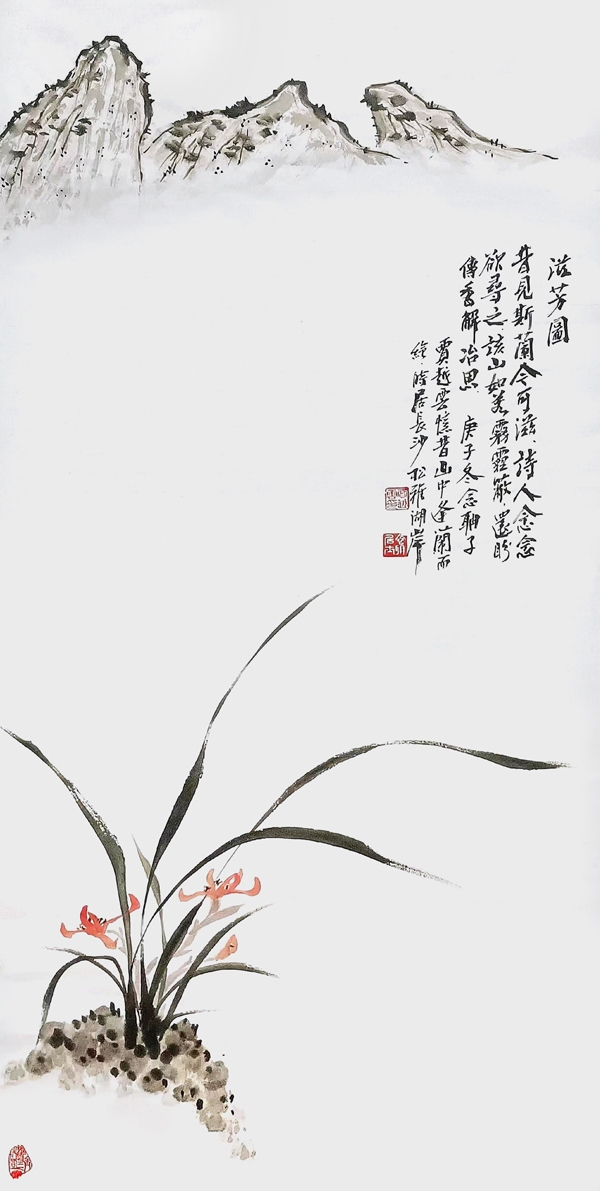 滋芳圖
昔見斯蘭令可滋、詩人念念
欲尋之、該山如羞霧靈蔽、還盼
傳香解冶思、庚子冬念聃子
賈越雲憶昔山中逢蘭而
繪、時居長沙松雅湖岸